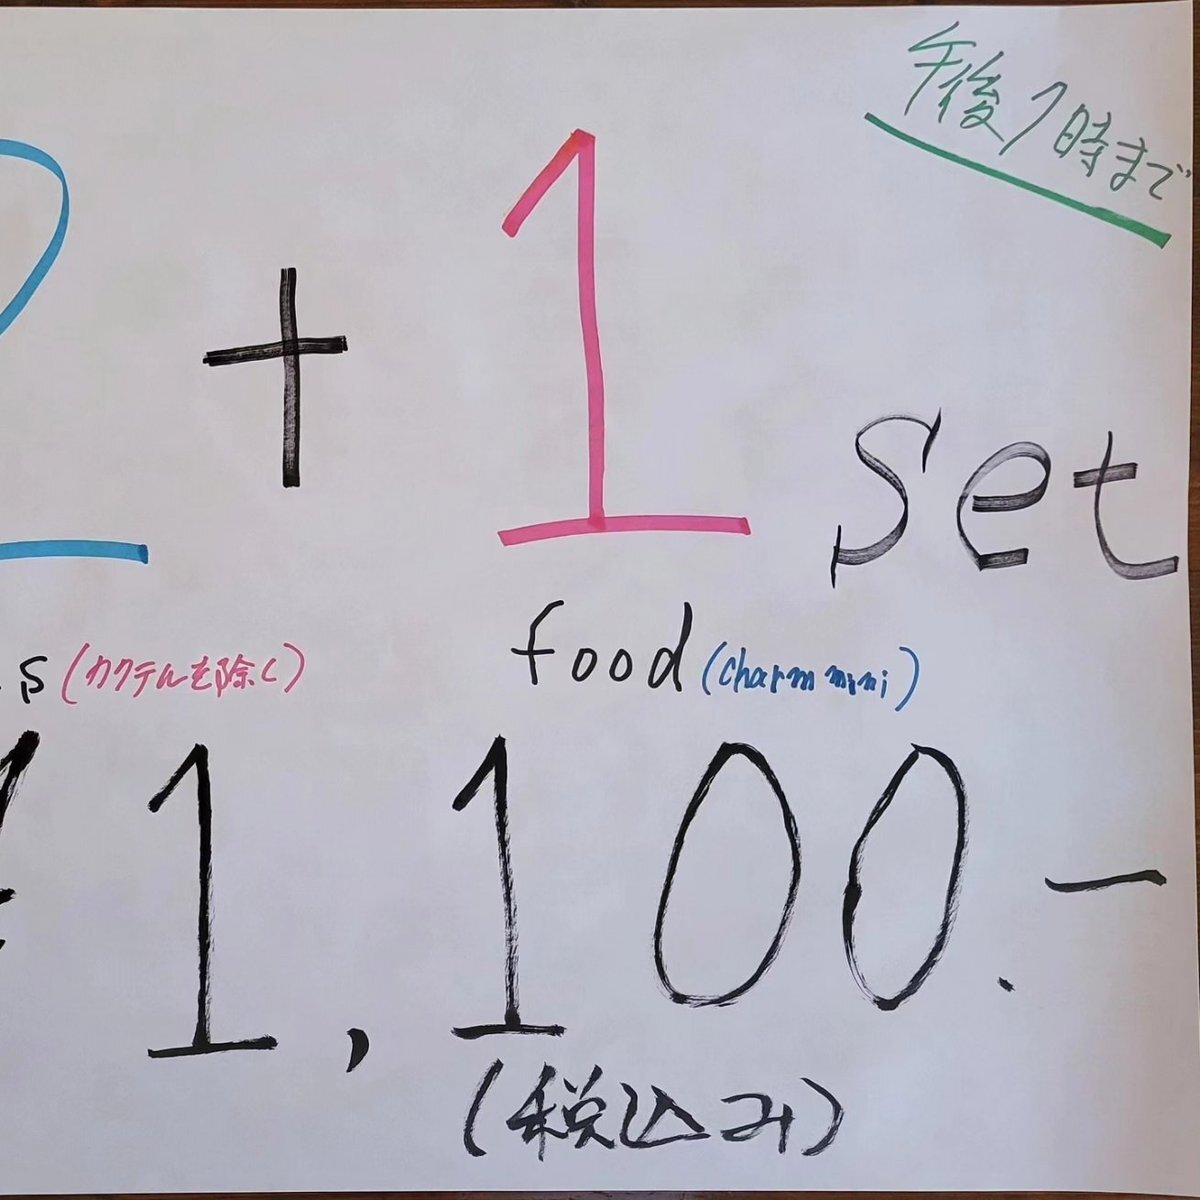 午後7時まで
2 + 1 set
s (カクテルを除く) food (charm mini)
¥1,100.-
(税込み)